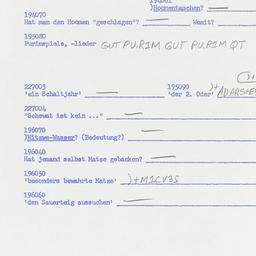 )Hoomentaschen?
194070
Hat man den Hoomen "geschlagen"? Womit?
195080
Purimspiele, -lieder GUT PU.R1M GUT PU.R1M QT
227003 195090
'ein Schaltjahr' 'der 2. Oder'
227004
"Schewat ist kein ..."
196070
)Mitzwe-Wasser? (Bedeutung?)
196040
Hat jemand selbst Matse gebacken?
196050
'besonders bewahrte Matse' )+M1CV3S
196060
'den Sauerteig aussuchen'